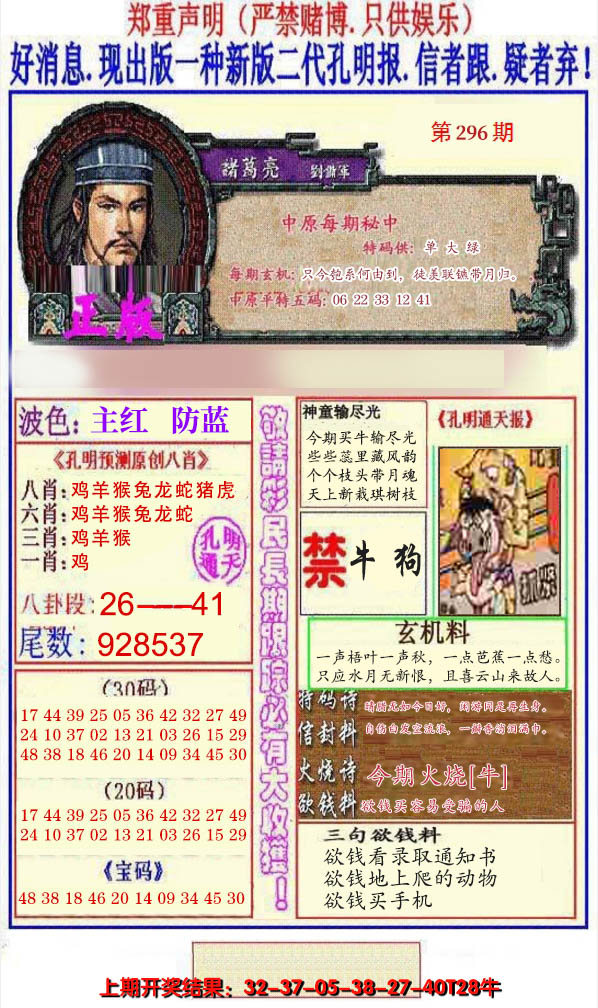 郑重声明（严禁赌博.只供娱乐）
好消息.现出版一种新版二代孔明报.信者跟.疑者弃!
第296期
諸葛亮
中原每期秘中
特码供：单大绿
每期玄机：只今匏系何由到，徒羡联镳带月归。
中原平特五码：06 22 33 12 41
正版
波色：主红 防蓝
《孔明预测原创八肖》
八肖：鸡羊猴兔龙蛇猪虎
六肖：鸡羊猴兔龙蛇
三肖：鸡羊猴
一肖：鸡
孔明
通天
八卦段：26——41
尾数：928537
（30码）
17 44 39 25 05 36 42 32 27 49
24 10 37 02 13 21 03 26 15 29
48 38 18 46 20 14 09 34 45 30
（20码）
17 44 39 25 05 36 42 32 27 49
24 10 37 02 13 21 03 26 15 29
《宝码》
48 38 18 46 20 14 09 34 45 30
敬請彩民長期跟踪必有大收獲！
神童输尽光
今期买牛输尽光
些些蕊里藏风韵
个个枝头带月魂
天上新栽琪树枝
《孔明通天报》
禁牛 狗
玄机料
一声梧叶一声秋，一点芭蕉一点愁。
只应水月无新恨，且喜云山来故人。
特码诗
晴腊无如今日好，闲游同是再生身。
信封料
自伤白发空流浪，一瓣香消泪满巾。
火烧诗
今期火烧[牛]
欲钱料
欲钱买容易受骗的人
三句欲钱料
欲钱看录取通知书
欲钱地上爬的动物
欲钱买手机
上期开奖结果：32-37-05-38-27-40T28牛